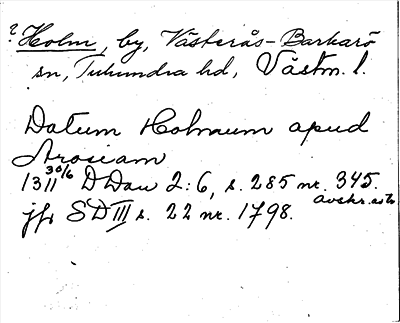 ? Holm, by, Västerås-Barkarö
sn, Tuhundra hd, Västm. l.
Datum Holmum apud
Arosiam
1311 30/6 DDan 2:6, s. 285 nr. 345.
avskr.
jfr SD III s. 22 nr. 1798.